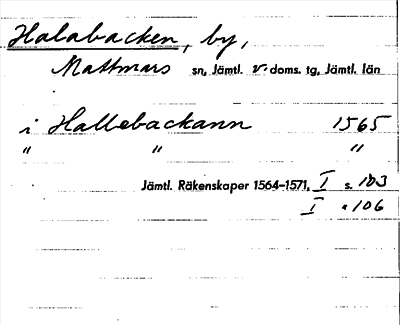 Halabacken, by,
Mattmars sn, Jämtl. v. doms. tg, Jämtl. län
i Hallebackann 1565
" " "
Jämtl. Räkenskaper 1564–1571, I s. 103
I " 106